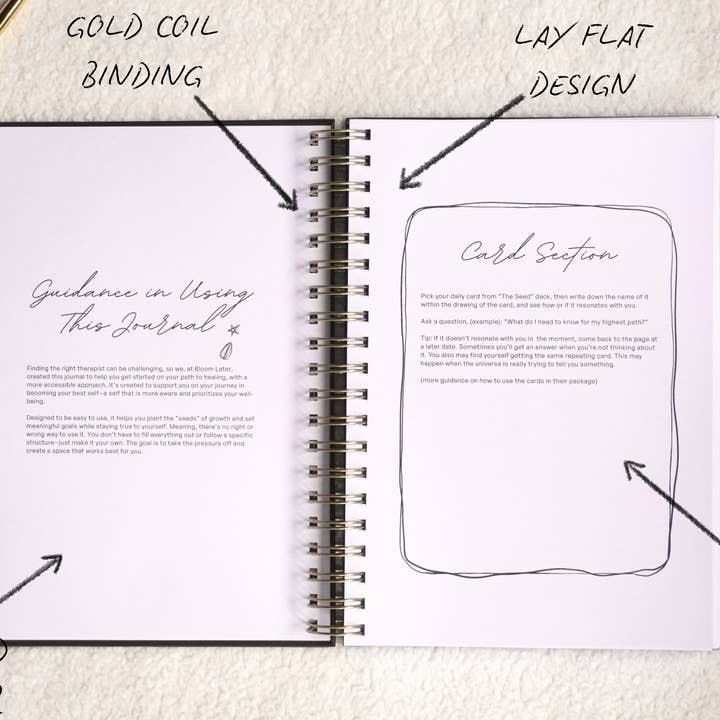 GOLD COIL
BINDING
LAY FLAT
DESIGN
Guidance in Using
This Journal
Finding the right therapist can be challenging, so we, at Bloom Later,
created this journal to help you get started on your path to healing, with a
more accessible approach. It's created to support you on your journey in
becoming your best self—a self that is more aware and prioritizes your well-
being.
Designed to be easy to use, it helps you plant the "seeds" of growth and set
meaningful goals while staying true to yourself. Meaning, there's no right or
wrong way to use it. You don't have to fill everything out or follow a specific
structure—just make it your own. The goal is to take the pressure off and
create a space that works best for you.
Card Section
Pick your daily card from "The Seed" deck, then write down the name of it
within the drawing of the card, and see how or if it resonates with you.
Ask a question, (example): "What do I need to know for my highest path?"
Tip: If it doesn't resonate with you in the moment, come back to the page at
a later date. Sometimes you'll get an answer when you're not thinking about
it. You also may find yourself getting the same repeating card. This may
happen when the universe is really trying to tell you something.
(more guidance on how to use the cards in their package)